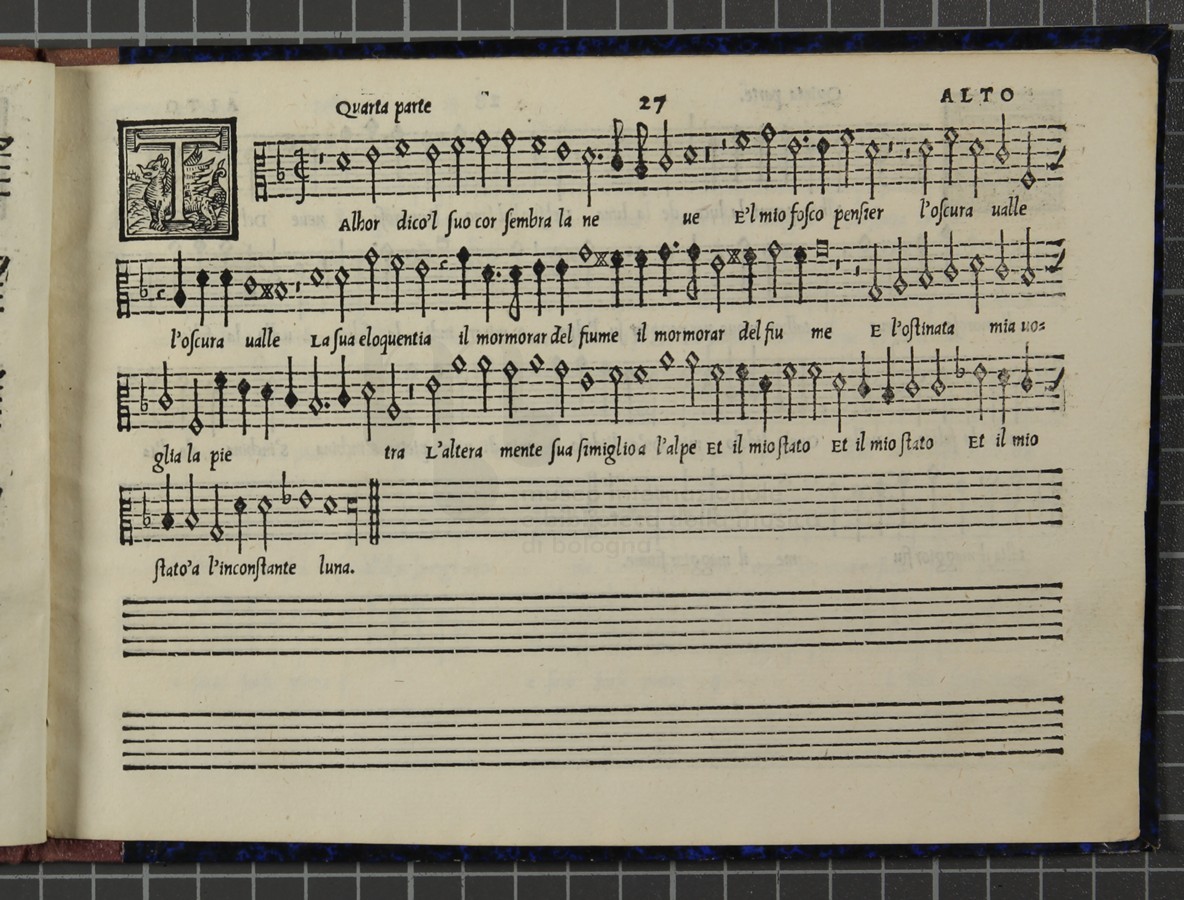 Quarta parte 27 ALTO
TAlhor dico'l ſuo cor ſembra la ne ue E'l mio foſco penſier l'oſcura ualle
l'oſcura ualle La ſua eloquentia il mormorar del fiume il mormorar del fiu me E l'oſtinata mia uo=
glia la pie tra L'altera mente ſua ſimiglio a l'alpe Et il mio ſtato Et il mio ſtato Et il mio
ſtato'a l'inconſtante luna.